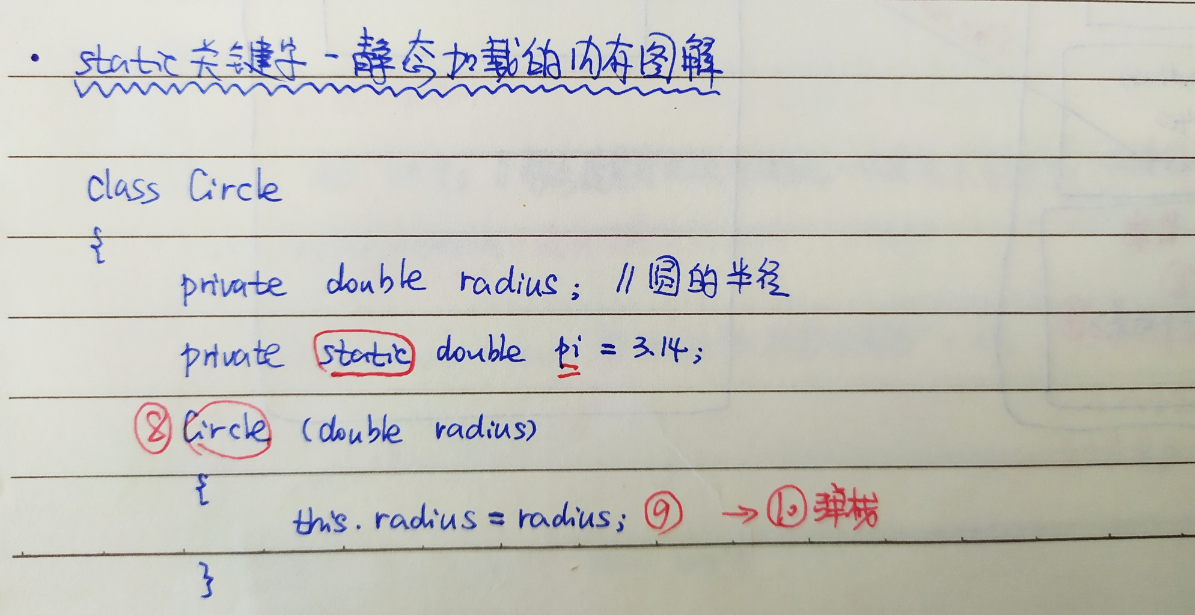 · static关键字-静态加载的内存图解
class Circle
{
private double radius; //圆的半径
private static double pi = 3.14;
⑧ Circle (double radius)
{
this.radius = radius; ⑨ → ⑩ 弹栈
}